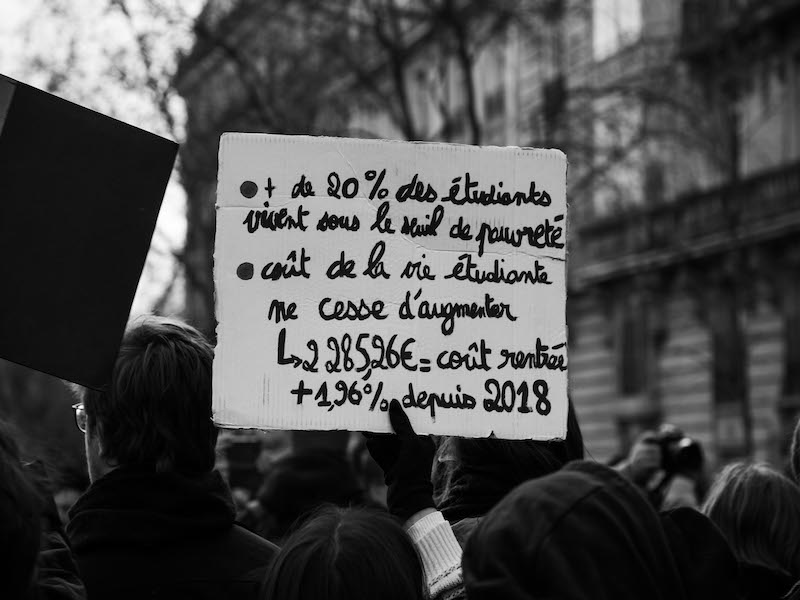 ● + de 20% des étudiants
vivent sous le seuil de pauvreté
● coût de la vie étudiante
ne cesse d'augmenter
↳ 2 285,26€ = coût rentrée
+1,96% depuis 2018